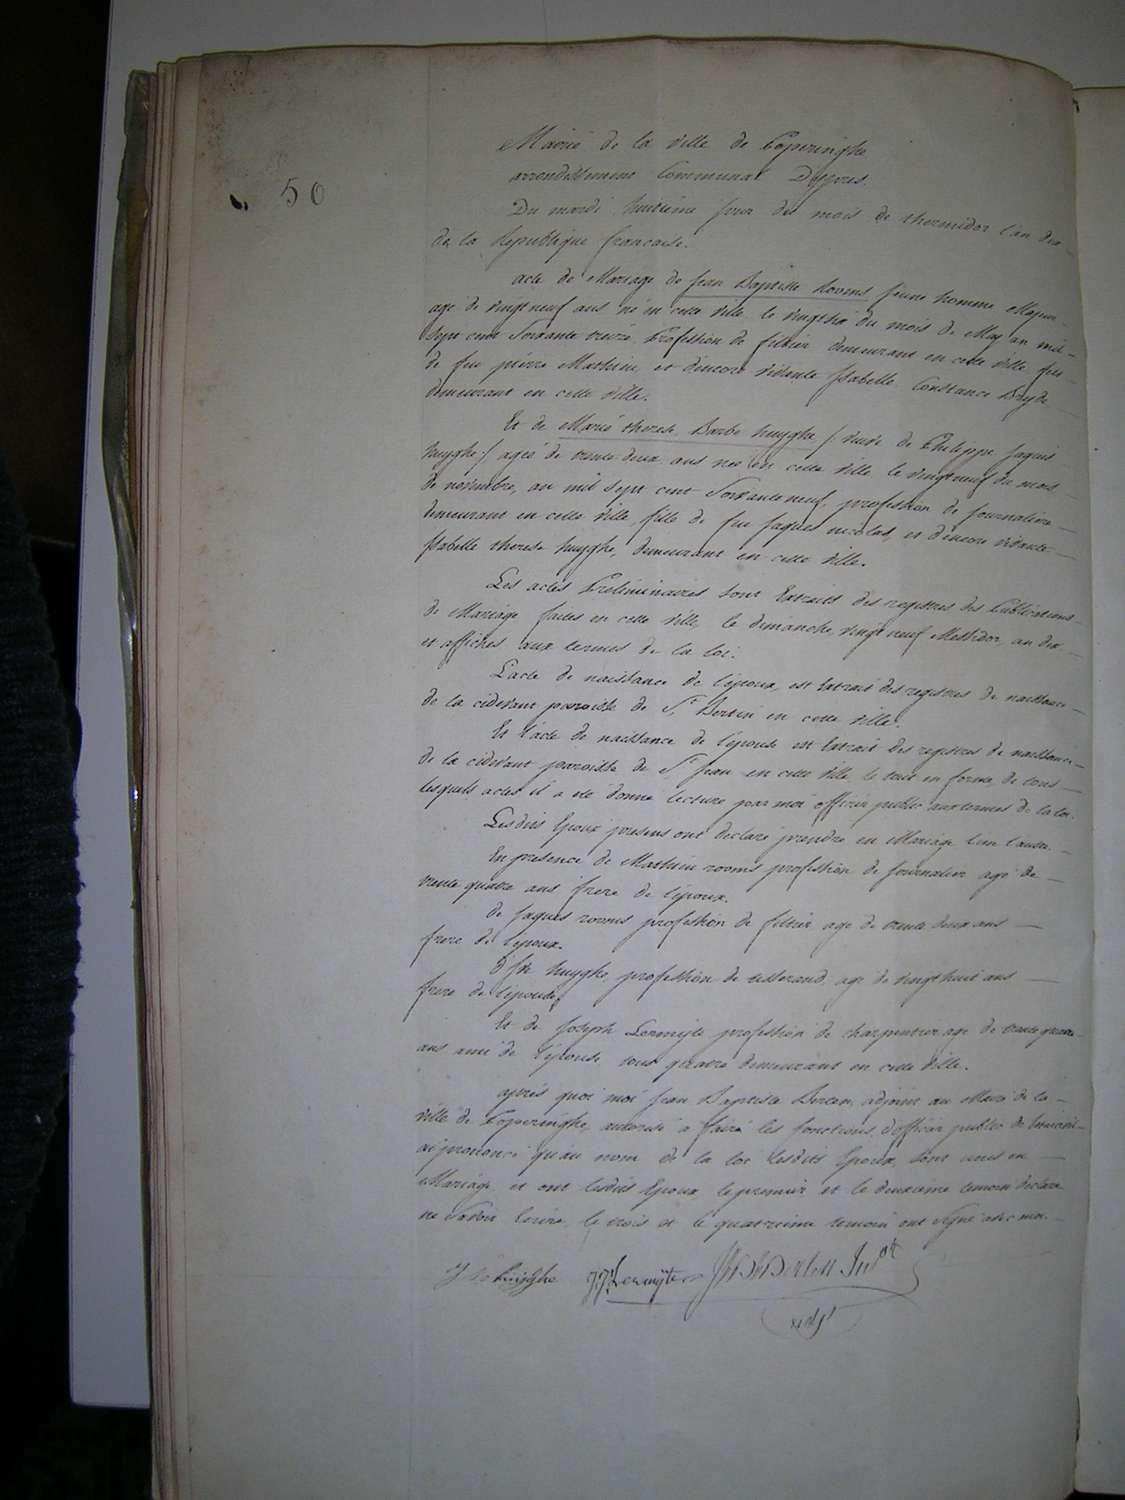 50
Mairié de la ville de Poperinghe
arrondissement Communal Dypres.
Du mardi huitieme jour du mois de thermidor l'an dix
de la Republique francaise.
acte de Mariage de jean Baptiste Rooms jeune homme Majeur
age de vingt neuf ans né en cette ville le vingtsix du mois de May an mil
Sept cent Soixante treize Profession de filtier demeurant en cette ville fils
de feu pierre Mathieu, et d'encore vivante Isabelle Constance
demeurant en cette ville.
Et de Marie therese Barbe huyghe /: veuve de Philippe Jaques
huyghe :/ ageé de trente deux ans neé en cette ville le vingt neuf du mois
de novembre, an mil sept cent Soixante neuf, profession de journaliere
demeurant en cette ville, fille de feu jaques nicolas, et d'encore vivante
Isabelle therese huyghe, demeurant en cette ville.
Les actes Preliminaires sont Extraits des registres des Publications
de Mariage faites en cette ville, le dimanche vingt neuf Messidor, an dix
et affiches aux termes de la loi.
L'acte de naissance de l'epoux, est Extrait des registres de naissance
de la cidevant paroisse de St Bertin en cette ville.
Et l'acte de naissance de l'epouse est Extrait des registres de naissance
de la cidevant paroisse de St jean en cette ville, le tout en forme, de tous
lesquels actes il a eté donné lecture par moi officier public aux termes de la loi.
Lesdits Epoux presens ont declaré prendre en Mariage l'un l'autre.
En presence de Mathieu rooms profession de journalier agé de
trente quatre ans frere de l'epoux.
de jaques rooms profession de filtier age de trente deux ans
frere de l'epoux.
huyghe, profession de tisserand, age de vingthuit ans
frere de l'epouse
Et de Joseph Lermyte profession de charpentier age de trente quatre
ans ami de l'epouse tous quatre demeurans en cette ville.
aprés quoi moi jean Baptiste Berten, adjoint au Maire de la
ville de Poperinghe, autorisé a faire les fonctions d'officier public de l'etat civil
ai prononcé qu'au nom de la loi lesdits Epoux sont unis en
Mariage, et ont lesdits Epoux le premier et le deuxieme temoin declare
ne Savoir Ecrire, le trois et le quatrieme temoin ont Signé avec moi.
huyghe J J Lermyte Berten
adjt